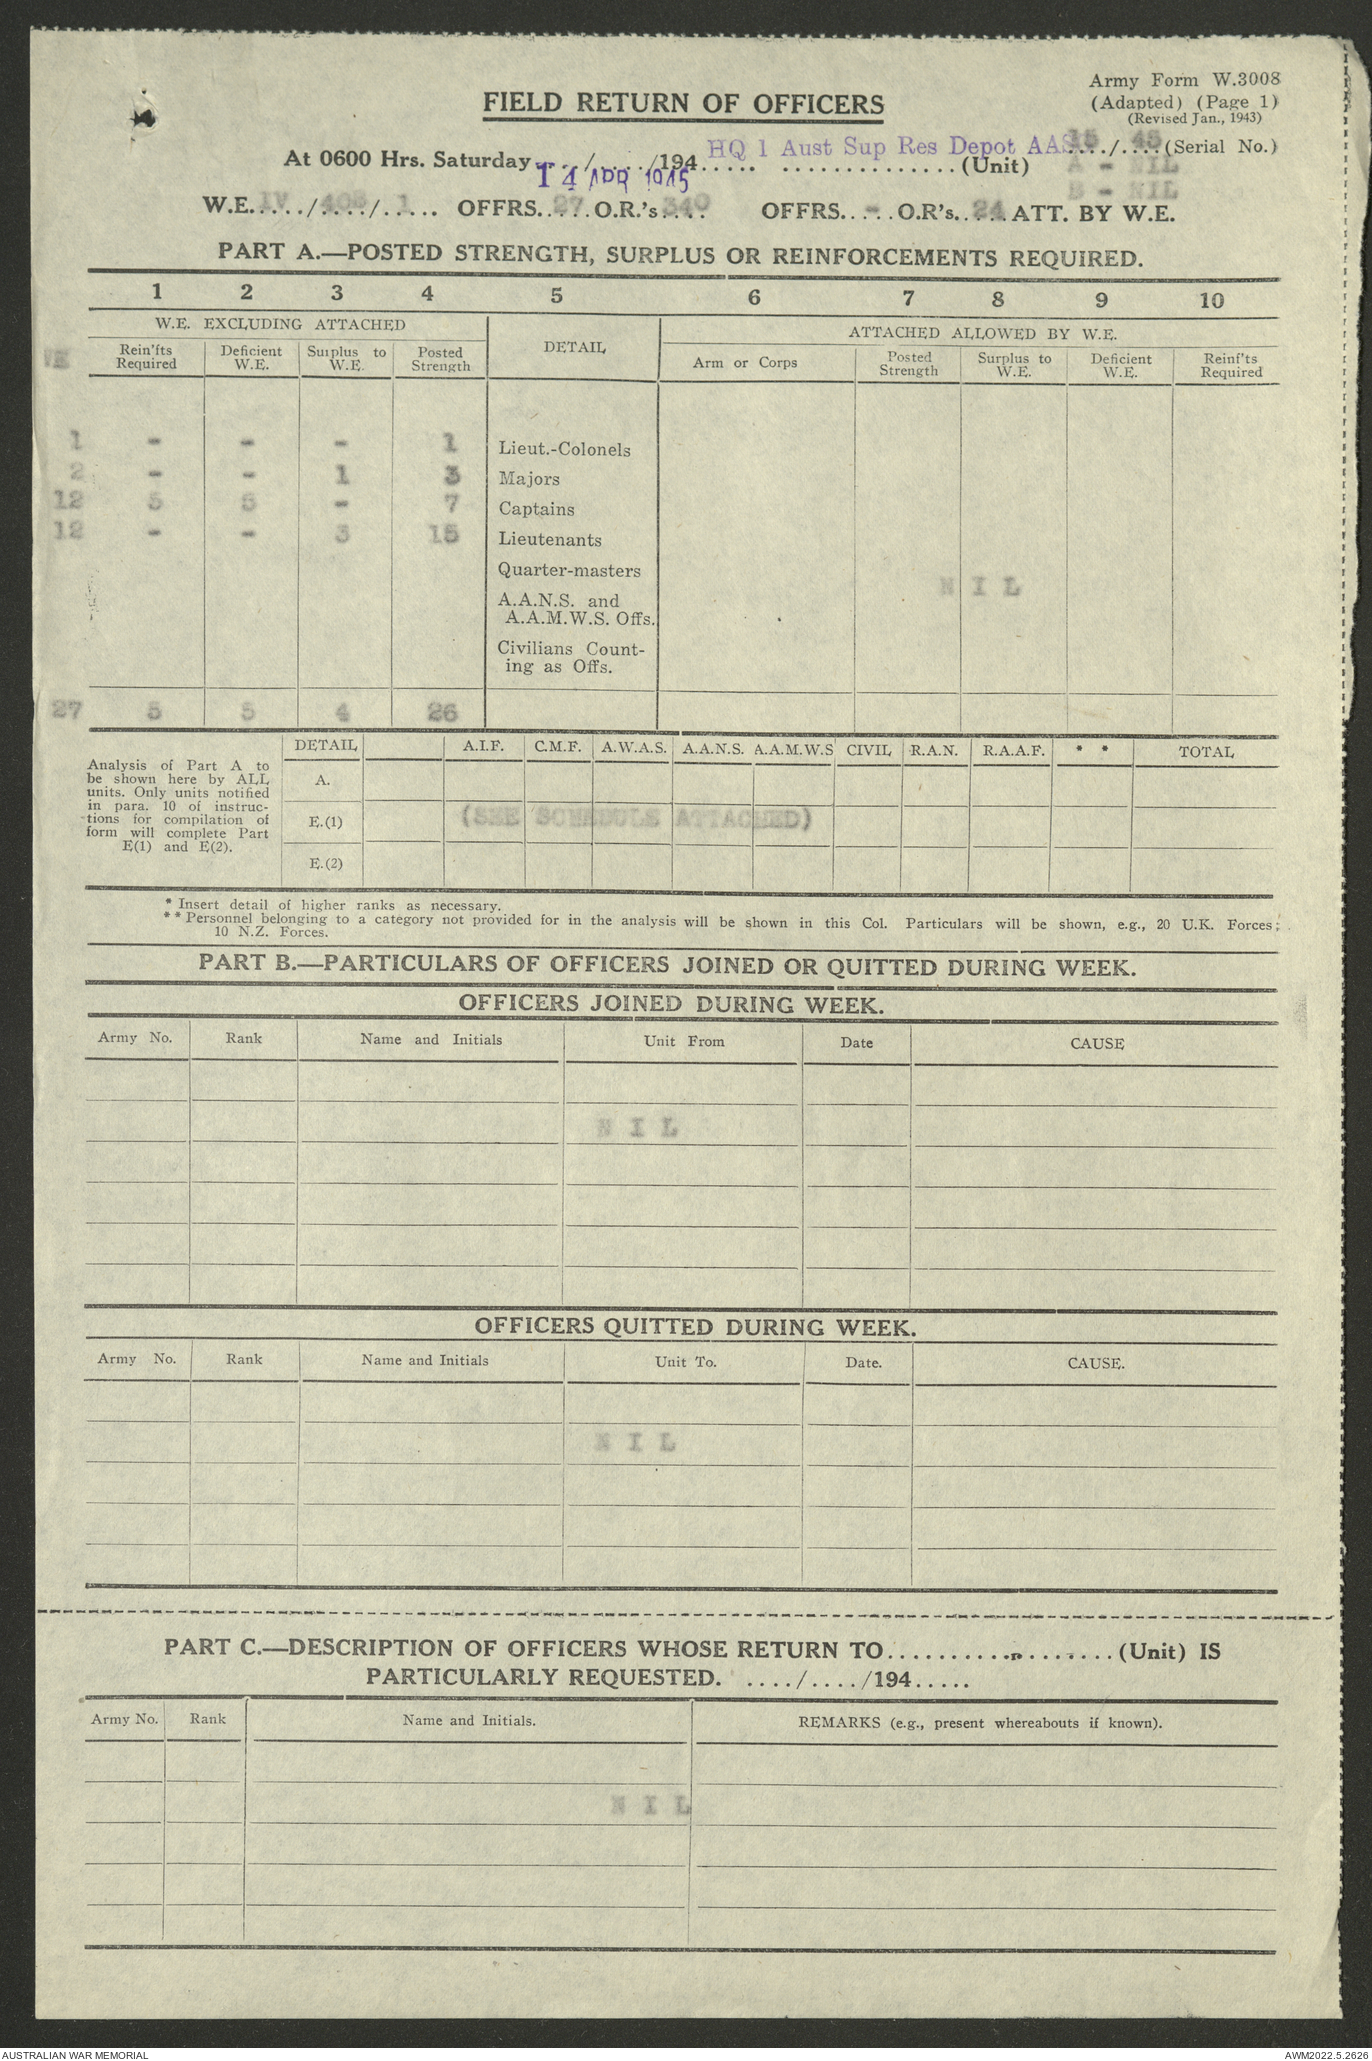 Army Form W.3008
FIELD RETURN OF OFFICERS
(Adapted) (Page 1)
(Revised Jan., 1943)
At 0600 Hrs. Saturday..../..../194..... HQ 1 Aust Sup Res Depot AAS ............... (Unit) 15.../....45 (Serial No.)
14 APR 1945
A - NIL
B - NIL
W.E. IV/40B/1 OFFRS. 27 O.R.'s 340 OFFRS. - O.R's. 24 ATT. BY W.E.
PART A.—POSTED STRENGTH, SURPLUS OR REINFORCEMENTS REQUIRED.
1 2 3 4 5 6 7 8 9 10
W.E. EXCLUDING ATTACHED DETAIL ATTACHED ALLOWED BY W.E.
WE Rein'fts Required Deficient W.E. Surplus to W.E. Posted Strength Arm or Corps Posted Strength Surplus to W.E. Deficient W.E. Reinf'ts Required
1 - - - 1 Lieut.-Colonels
2 - - 1 3 Majors
12 5 5 - 7 Captains
12 - - 3 15 Lieutenants
Quarter-masters
N I L
A.A.N.S. and
A.A.M.W.S. Offs.
Civilians Count-
ing as Offs.
27 5 5 4 26
DETAIL A.I.F. C.M.F. A.W.A.S. A.A.N.S. A.A.M.W.S CIVIL R.A.N. R.A.A.F. * * TOTAL
Analysis of Part A to
be shown here by ALL
units. Only units notified
in para. 10 of instruc-
tions for compilation of
form will complete Part
E(1) and E(2).
A.
E.(1) (SEE SCHEDULE ATTACHED)
E.(2)
* Insert detail of higher ranks as necessary.
** Personnel belonging to a category not provided for in the analysis will be shown in this Col. Particulars will be shown, e.g., 20 U.K. Forces;
10 N.Z. Forces.
PART B.—PARTICULARS OF OFFICERS JOINED OR QUITTED DURING WEEK.
OFFICERS JOINED DURING WEEK.
Army No. Rank Name and Initials Unit From Date CAUSE
N I L
OFFICERS QUITTED DURING WEEK.
Army No. Rank Name and Initials Unit To. Date. CAUSE.
N I L
PART C.—DESCRIPTION OF OFFICERS WHOSE RETURN TO.................... (Unit) IS
PARTICULARLY REQUESTED. ..../..../194.....
Army No. Rank Name and Initials. REMARKS (e.g., present whereabouts if known).
N I L
AUSTRALIAN WAR MEMORIAL AWM2022.5.2626